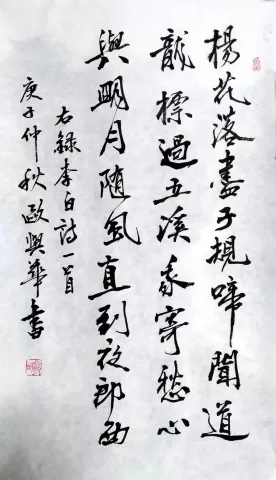 楊花落盡子規啼聞道
龍標過五溪我寄愁心
與明月随風直到夜郎西
右錄李白詩一首
庚子仲秋歐興華書